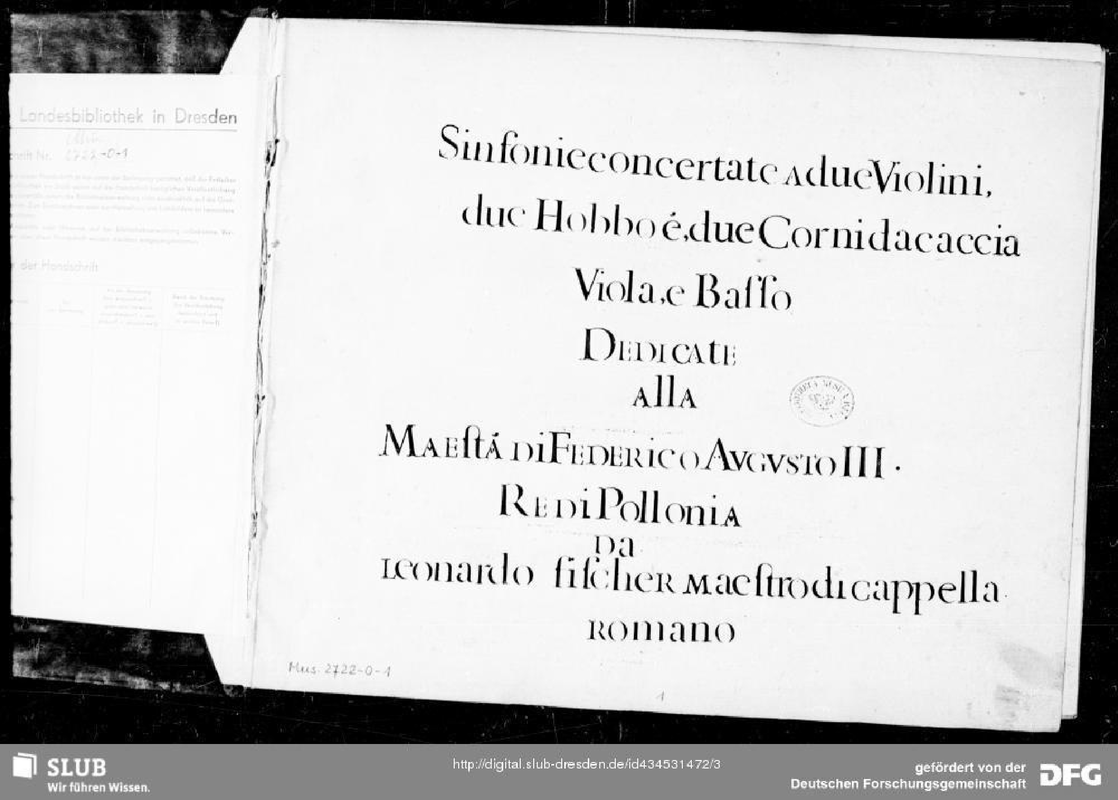 Landesbibliothek in Dresden
2722-0-1
der Handschrift
Sinfonie concertate A due Violini,
due Hobboé, due Corni da caccia
Viola, e Baſſo
DEDICATE
allA
MAEſtÁ DI FEDERICO AVGVSTO III.
RE DI PollonIA
Da
Leonardo fiſcheR Maeſtro di cappella
Romano
Mus. 2722-0-1
1
SLUB
Wir führen Wissen.
http://digital.slub-dresden.de/id434531472/3
gefördert von der
Deutschen Forschungsgemeinschaft
DFG